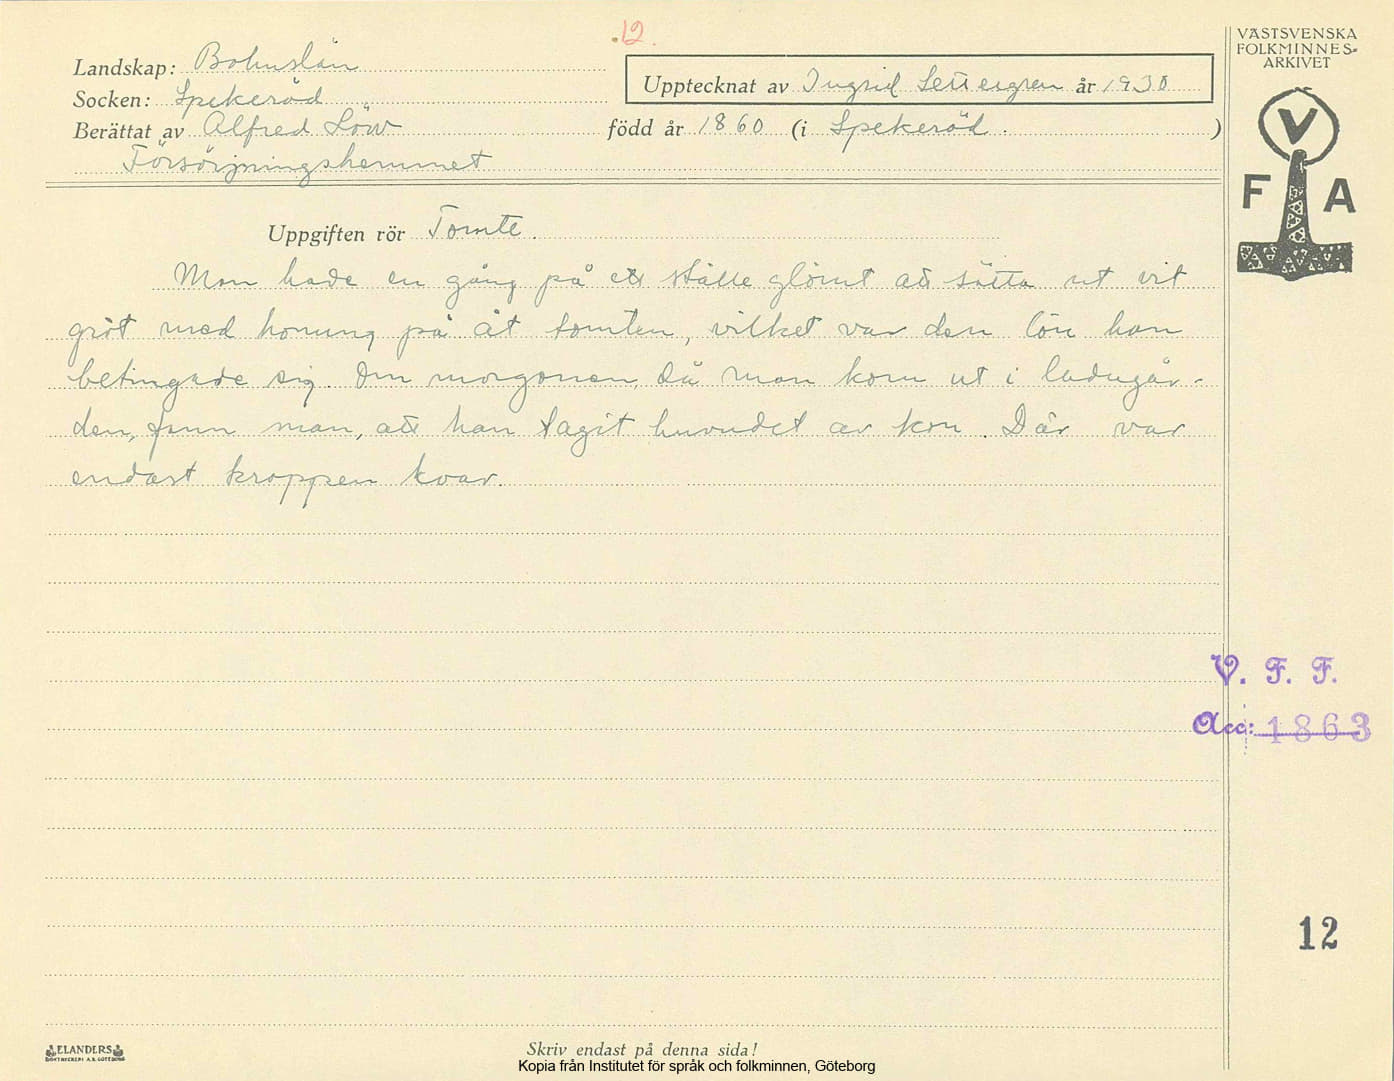 12.
VÄSTSVENSKA
FOLKMINNES-
ARKIVET
Landskap: Bohuslän
Upptecknat av Ingrid Settergren år 1930
Socken: Spekeröd
Berättat av Alfred Löw född år 1860 (i Spekeröd.)
Försörjningshemmet
V
F A
Uppgiften rör Tomte.
Man hade en gång på ett ställe glömt att sätta ut vit
gröt med honung på åt tomten, vilket var den lön han
betingade sig. Om morgonen, då man kom ut i ladugår-
den, fann man, att han tagit huvudet av kon. Där var
endast kroppen kvar.
V. F. F.
Acc: 1863
12
ELANDERS
BOKTRYCKERI A.B. GÖTEBORG
Skriv endast på denna sida!
Kopia från Institutet för språk och folkminnen, Göteborg